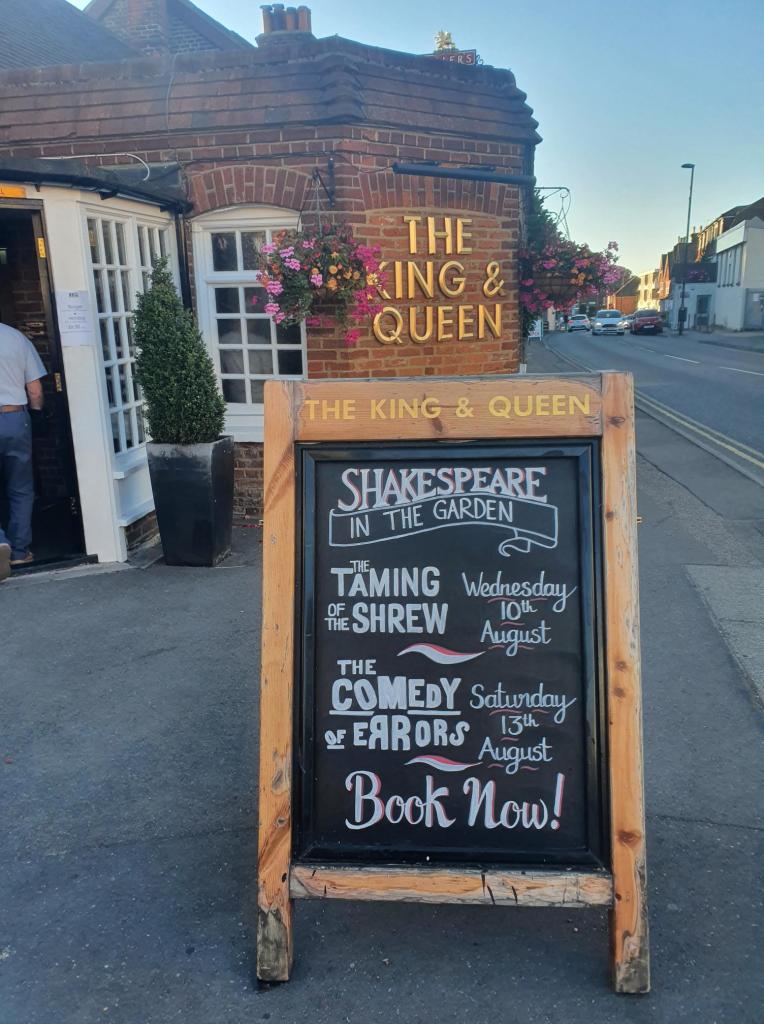 THE
KING &
QUEEN
THE KING & QUEEN
SHAKESPEARE
IN THE GARDEN
THE
TAMING
OF THE SHREW
Wednesday
10th
August
THE
COMEDY
OF ERRORS
Saturday
13th
August
Book Now!